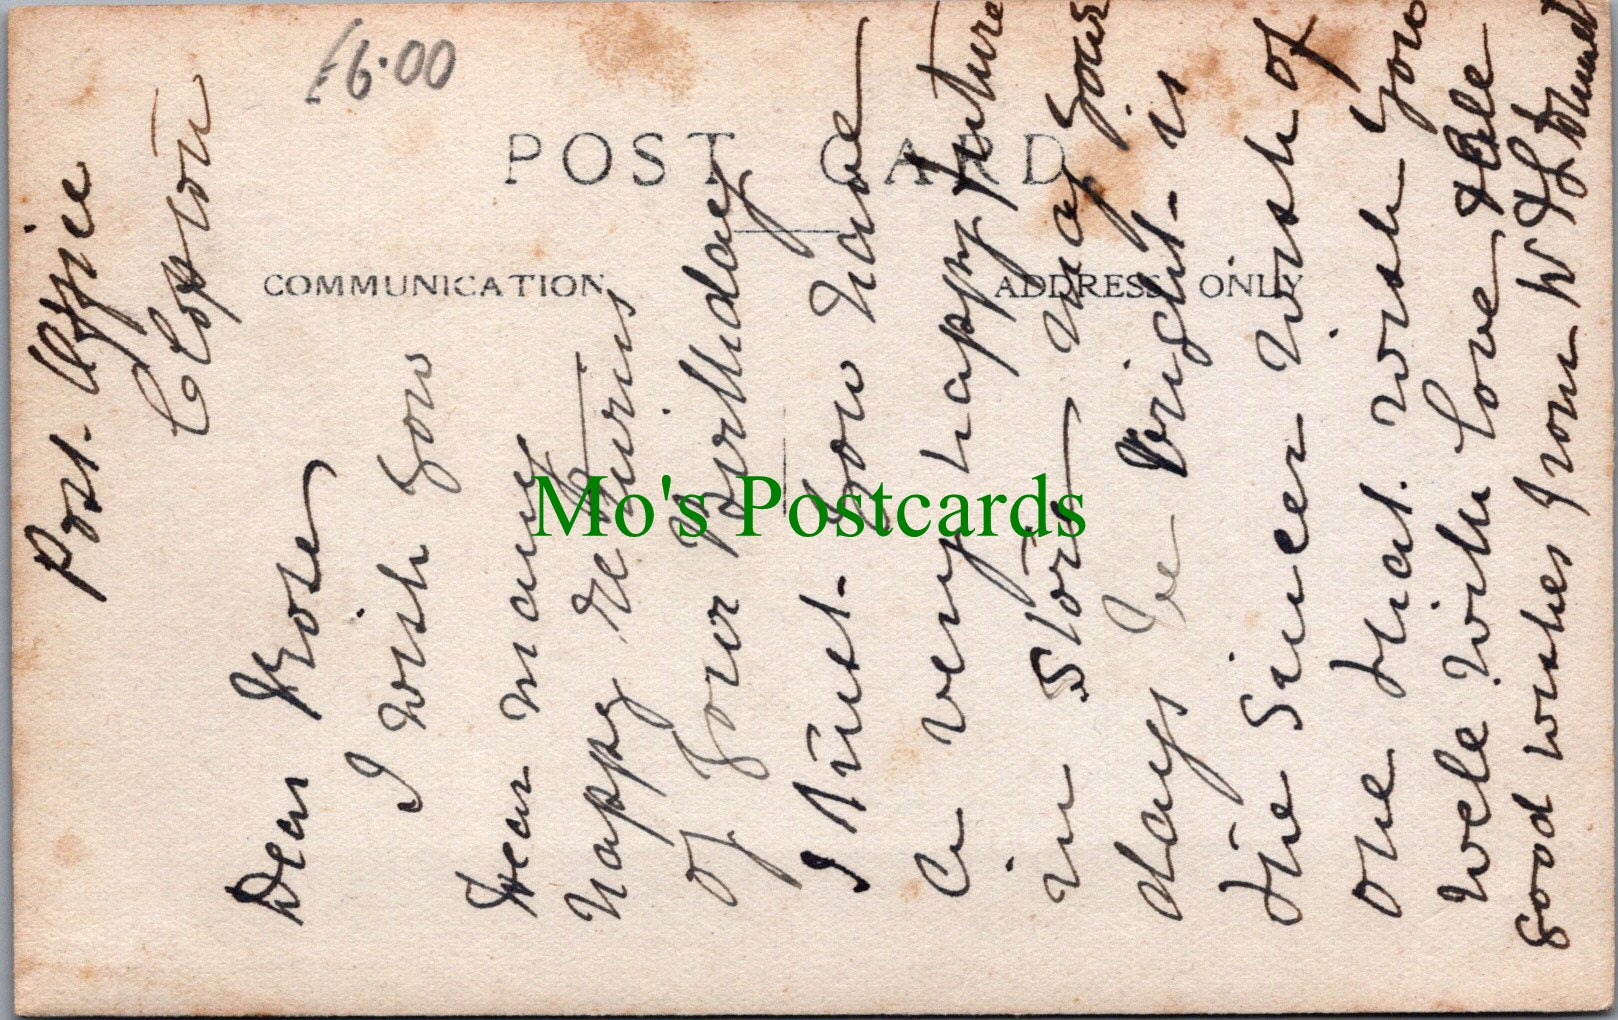 £6.00
POST CARD
COMMUNICATION
ADDRESS ONLY
Mo's Postcards
Post Office
Clopton
Dear Rose
I wish you
dear many
Happy Returns
of your Birthday
I Trust you have
a very happy future
in Store may your
days be bright is
the Sincer Wish of
one that wish you
well with love & All
good wishes from W H L